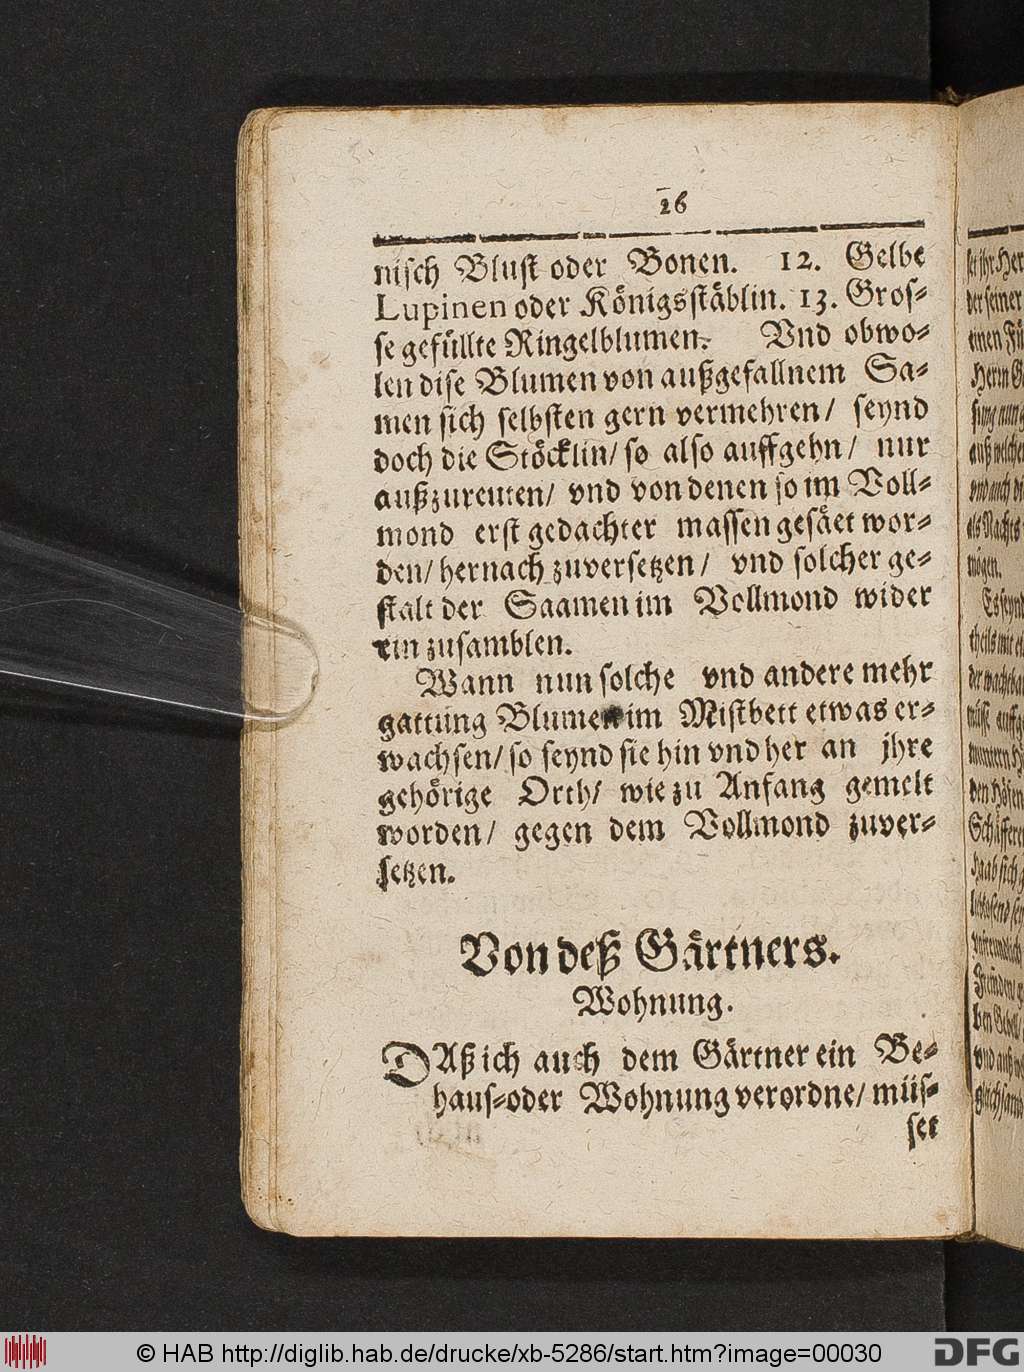 26
nisch Blust oder Bonen. 12. Gelbe
Lupinen oder Königsstäblin. 13. Gros-
se gefüllte Ringelblumen. Vnd obwo-
len dise Blumen von außgefallnem Sa-
men sich selbsten gern vermehren/ seynd
doch die Stöcklin/ so also auffgehn/ nur
außzureuten/ vnd von denen so im Voll-
mond erst gedachter massen gesäet wor-
den/ hernach zuversetzen/ vnd solcher ge-
stalt der Saamen im Vollmond wider
ein zusamblen.
Wann nun solche vnd andere mehr
gattung Blumen im Mistbett etwas er-
wachsen/ so seynd sie hin vnd her an jhre
gehörige Orth/ wie zu Anfang gemelt
worden/ gegen dem Vollmond zuver-
setzen.
Von deß Gärtners.
Wohnung.
DAß ich auch dem Gärtner ein Be-
haus-oder Wohnung verordne/ müs-
set
© HAB http://diglib.hab.de/drucke/xb-5286/start.htm?image=00030
DFG